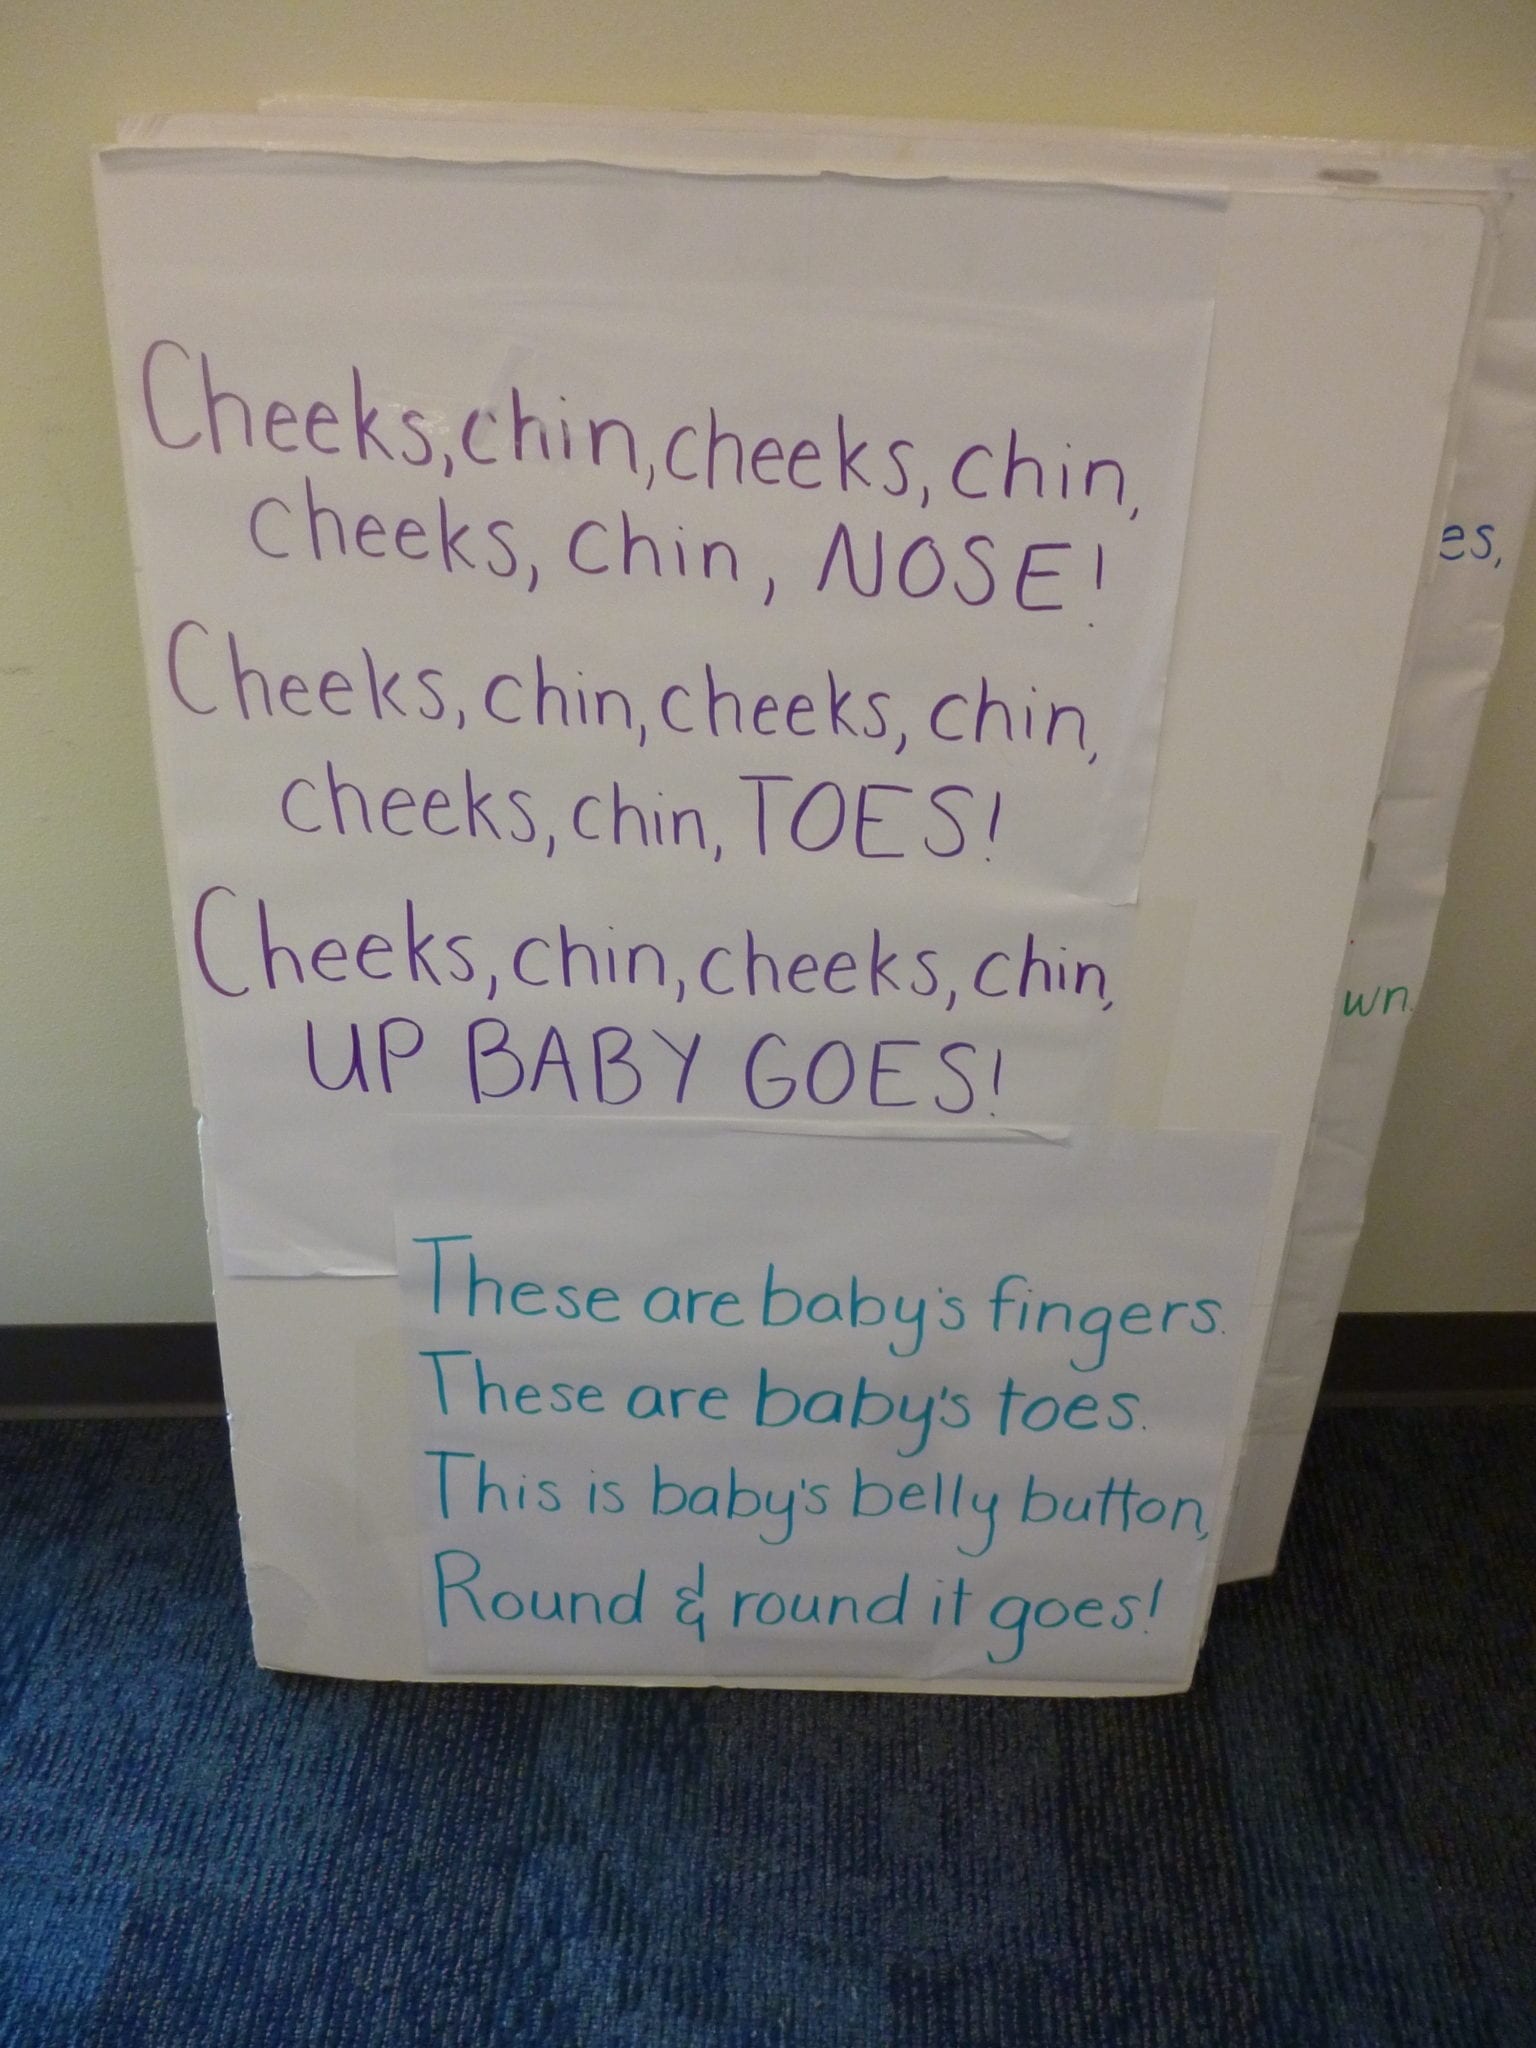 Cheeks, chin, cheeks, chin,
cheeks, chin, NOSE!
Cheeks, chin, cheeks, chin,
cheeks, chin, TOES!
Cheeks, chin, cheeks, chin,
UP BABY GOES!
These are baby's fingers.
These are baby's toes.
This is baby's belly button,
Round & round it goes!
es,
wn.